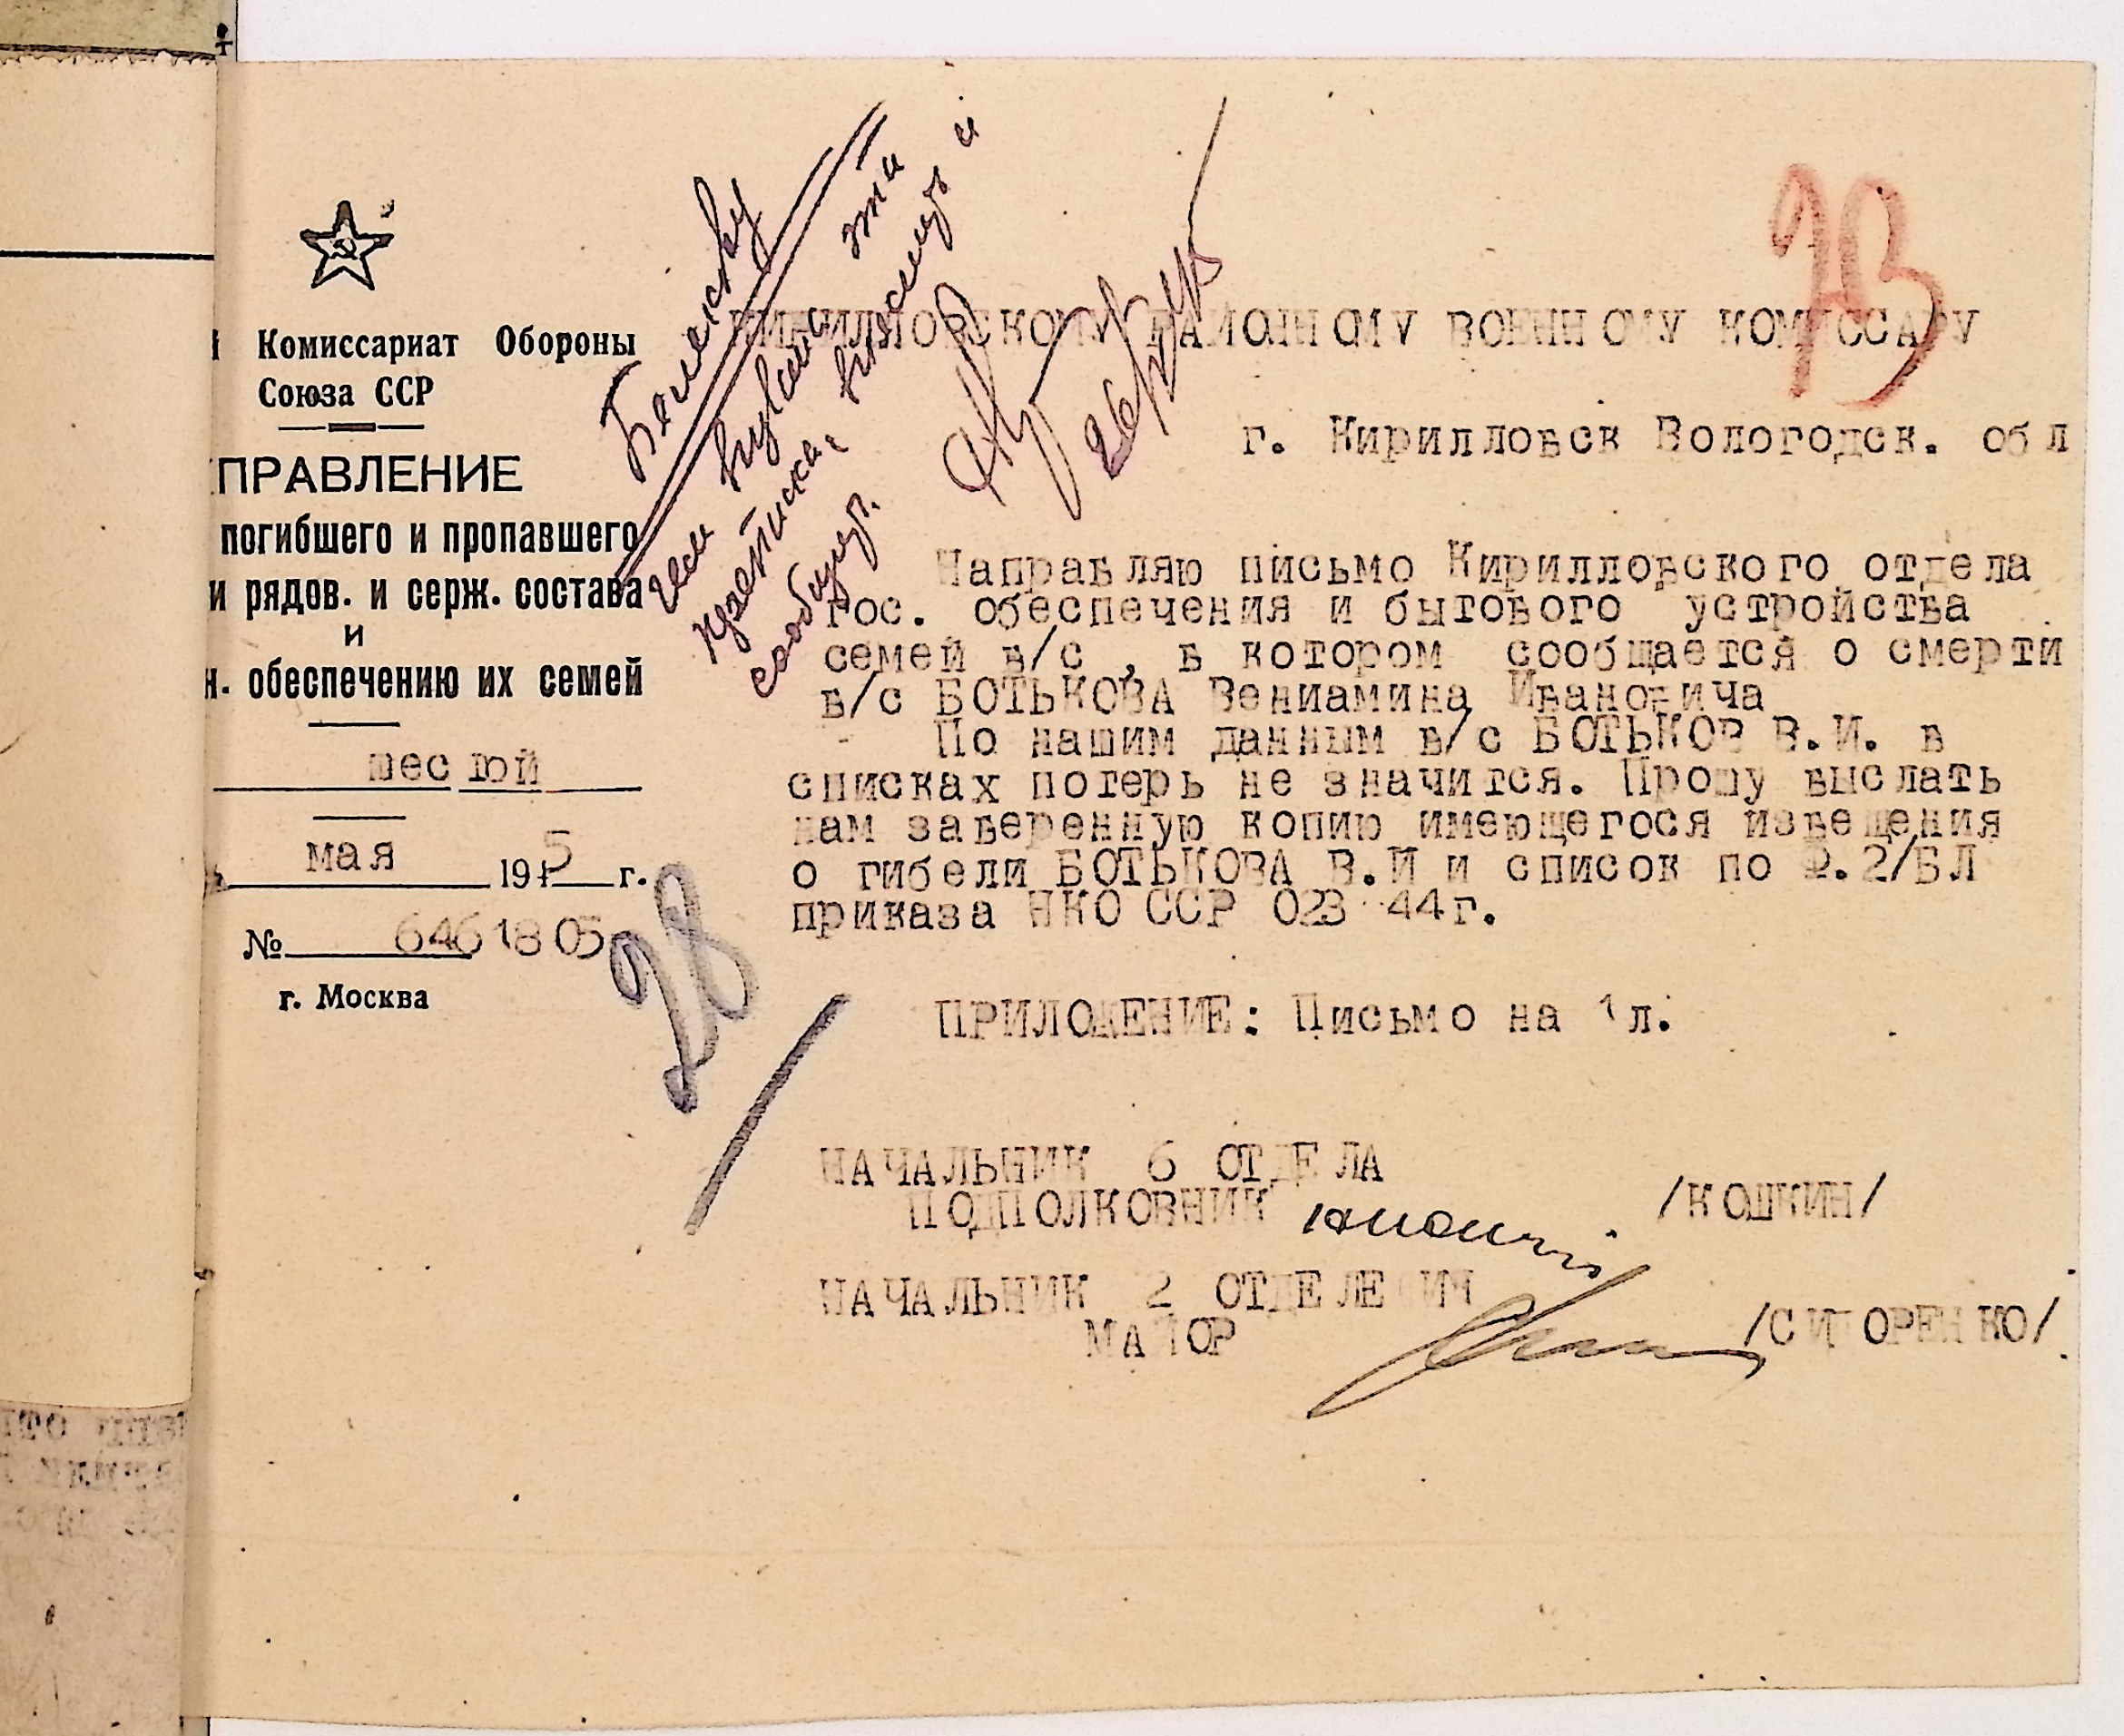 Комиссариат Обороны
Союза ССР
ПРАВЛЕНИЕ
погибшего и пропавшего
и рядов. и серж. состава
и
н. обеспечению их семей
шестой
мая 1945 г.
№ 6461805
г. Москва
КИРИЛЛОВСКОМУ РАЙОННОМУ ВОЕННОМУ КОМИССАРУ
г. Кирилловск Вологодск. обл
Направляю письмо Кирилловского отдела
гос. обеспечения и бытового устройства
семей в/с, в котором сообщается о смерти
в/с БОТЬКОВА Вениамина Ивановича
По нашим данным в/с БОТЬКОВ В.И. в
списках потерь не значится. Прошу выслать
нам заверенную копию имеющегося извещения
о гибели БОТЬКОВА В.И и список по Ф.2/БЛ
приказа НКО ССР 023 44г.
ПРИЛОЖЕНИЕ: Письмо на 1л.
НАЧАЛЬНИК 6 ОТДЕЛА
ПОДПОЛКОВНИК /КОШКИН/
НАЧАЛЬНИК 2 ОТДЕЛЕНИЯ
МАЙОР /СИДОРЕНКО/
сообщ.